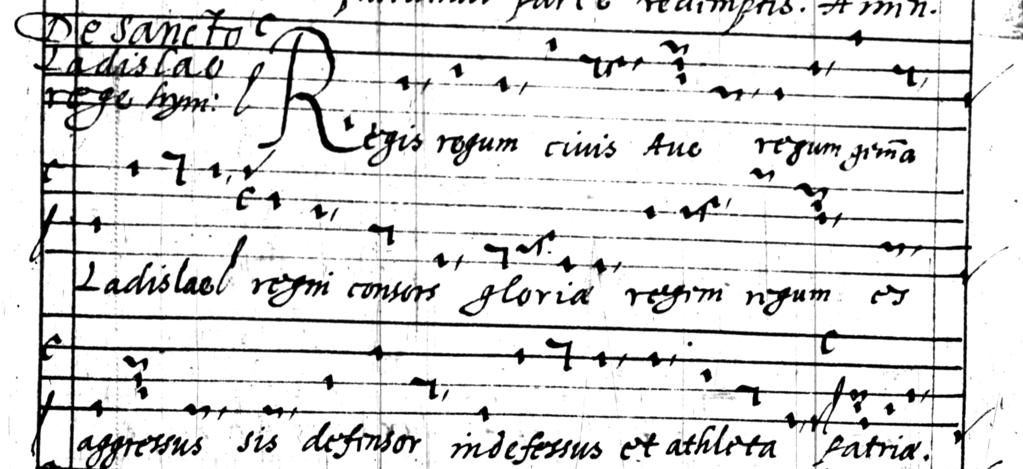 parce redemptis. Amen.
De sancto
Ladislao
rege hym:
Regis regum civis Ave regum gem̄a
Ladislae regni consors gloriæ regem regum es
aggressus sis defensor indefessus et athleta patriæ.